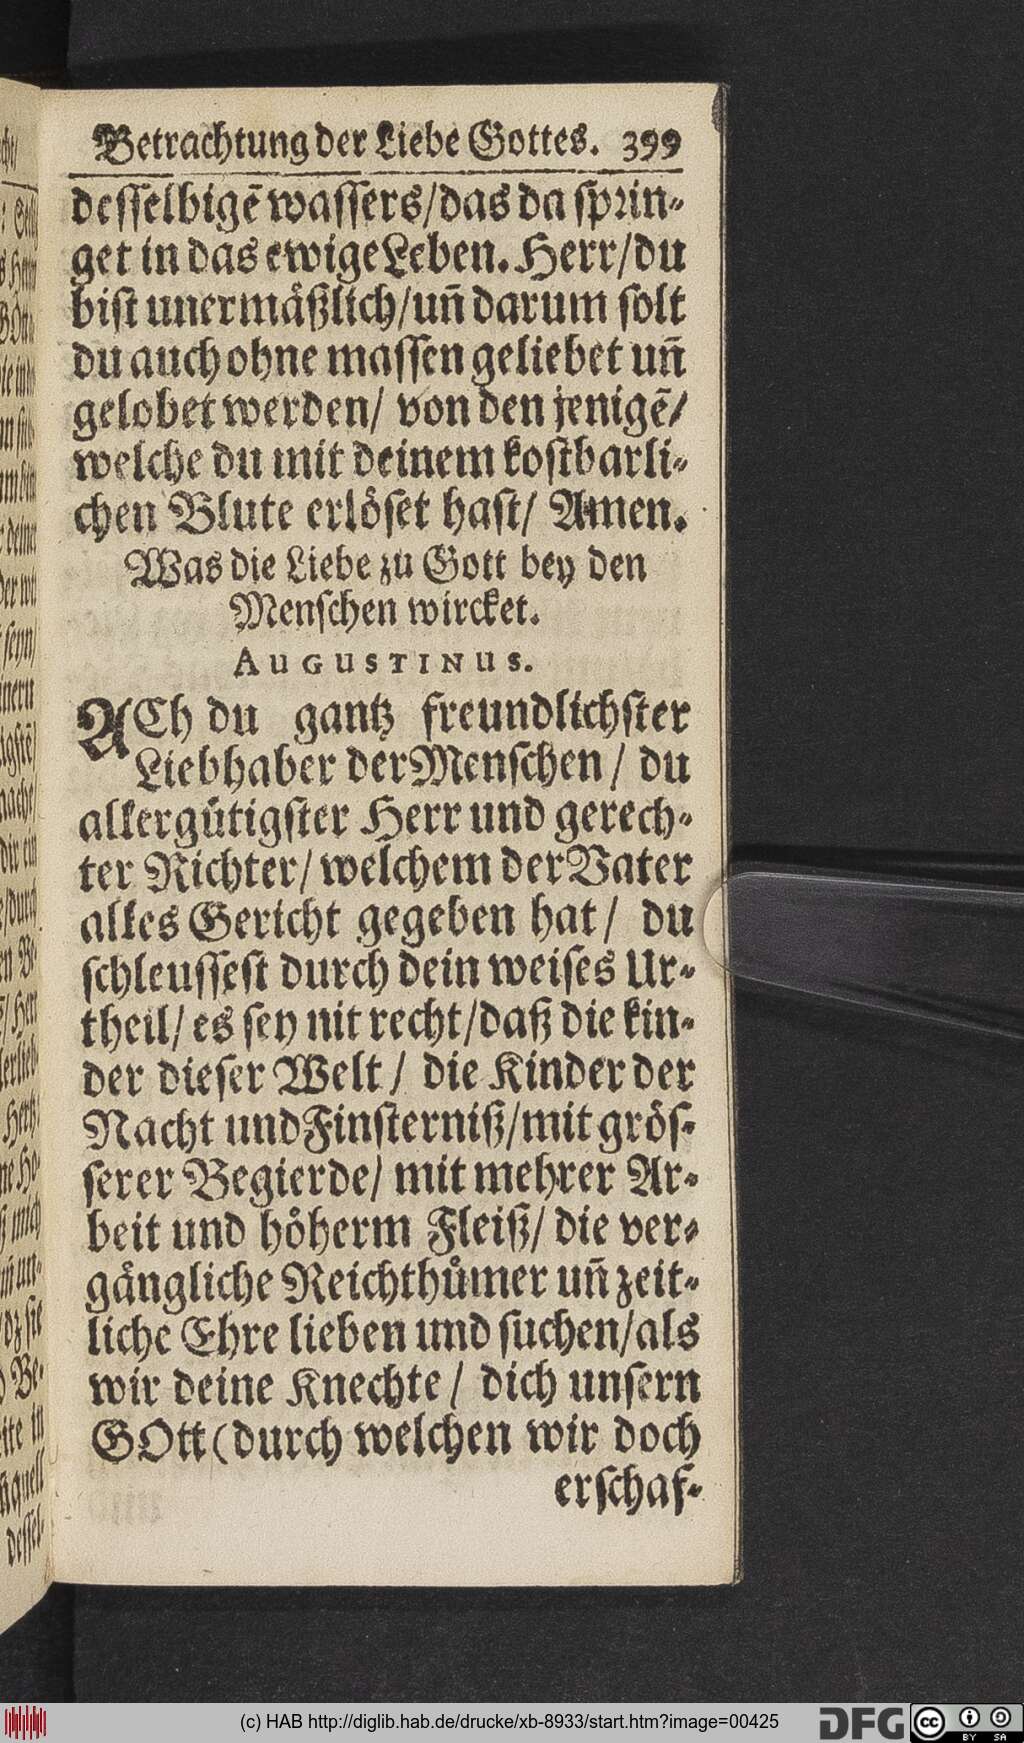 Betrachtung der Liebe Gottes. 399
desselbigē wassers/das da sprin-
get in das ewige Leben. Herr/du
bist unermäßlich/uñ darum solt
du auch ohne massen geliebet uñ
gelobet werden/ von den jenigē/
welche du mit deinem kostbarli-
chen Blute erlöset hast/ Amen.
Was die Liebe zu Gott bey den
Menschen wircket.
AUGUSTINUS.
ACh du gantz freundlichster
Liebhaber der Menschen/ du
allergütigster Herr und gerech-
ter Richter/ welchem der Vater
alles Gericht gegeben hat/ du
schleussest durch dein weises Ur-
theil/ es sey nit recht/daß die kin-
der dieser Welt/ die Kinder der
Nacht und Finsterniß/mit grös-
serer Begierde/ mit mehrer Ar-
beit und höherm Fleiß/ die ver-
gängliche Reichthümer uñ zeit-
liche Ehre lieben und suchen/als
wir deine Knechte/ dich unsern
GOtt (durch welchen wir doch
erschaf-
(c) HAB http://diglib.hab.de/drucke/xb-8933/start.htm?image=00425
DFG
cc BY SA